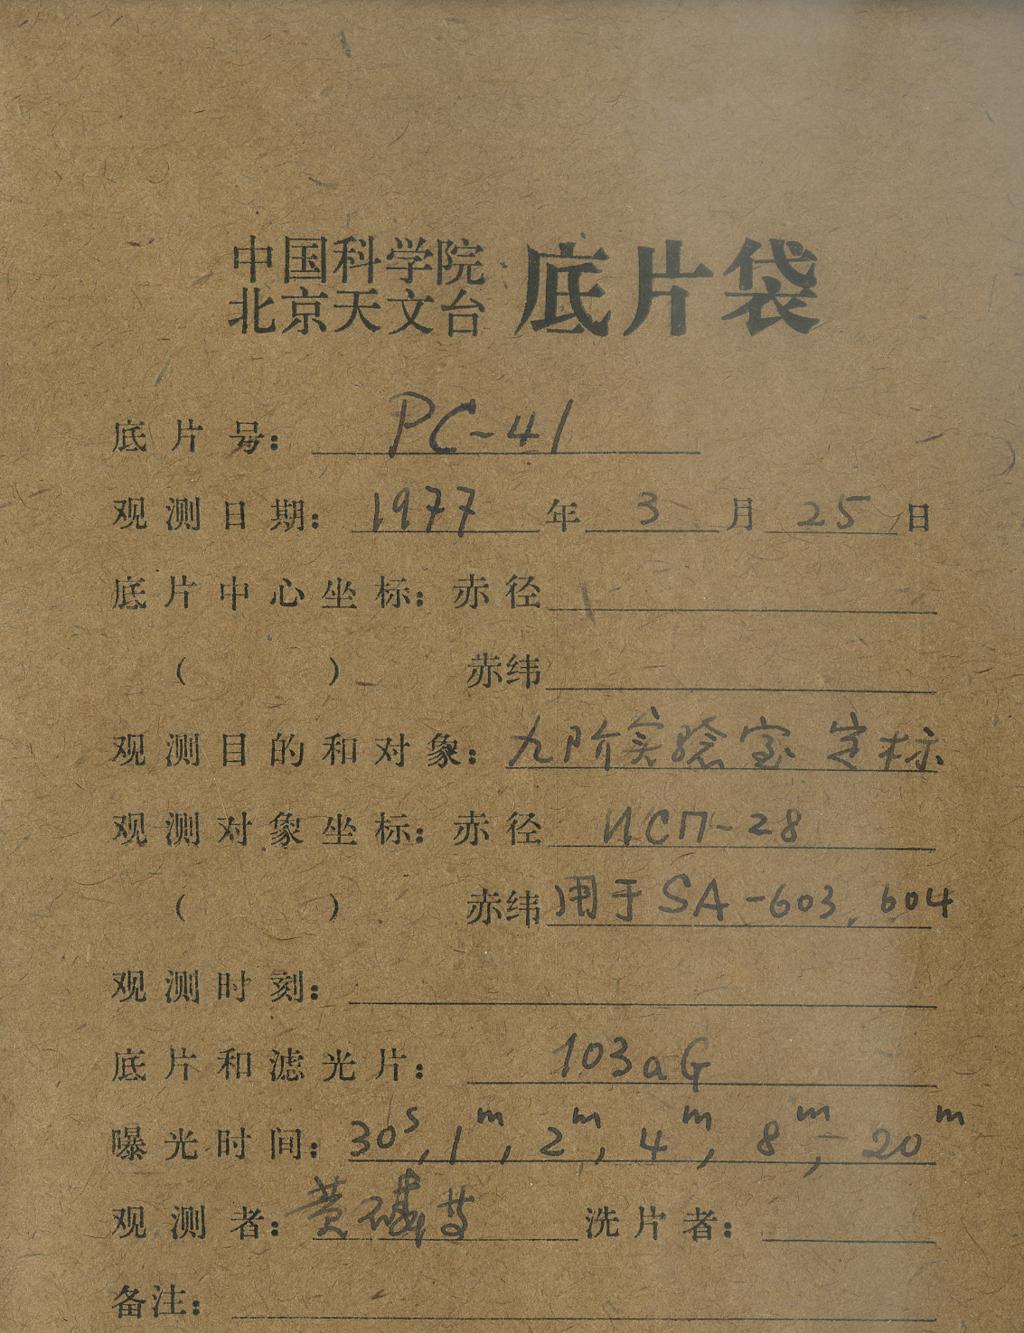 中国科学院
北京天文台 底片袋
底片号: PC-41
观测日期: 1977年3月25日
底片中心坐标: 赤径
( ) 赤纬
观测目的和对象: 九阶实验室定标
观测对象坐标: 赤径 ИСП-28
( ) 赤纬 用于SA-603, 604
观测时刻:
底片和滤光片: 103aG
曝光时间: 30s, 1m, 2m, 4m, 8m, 20m
观测者: 黄 洗片者:
备注: